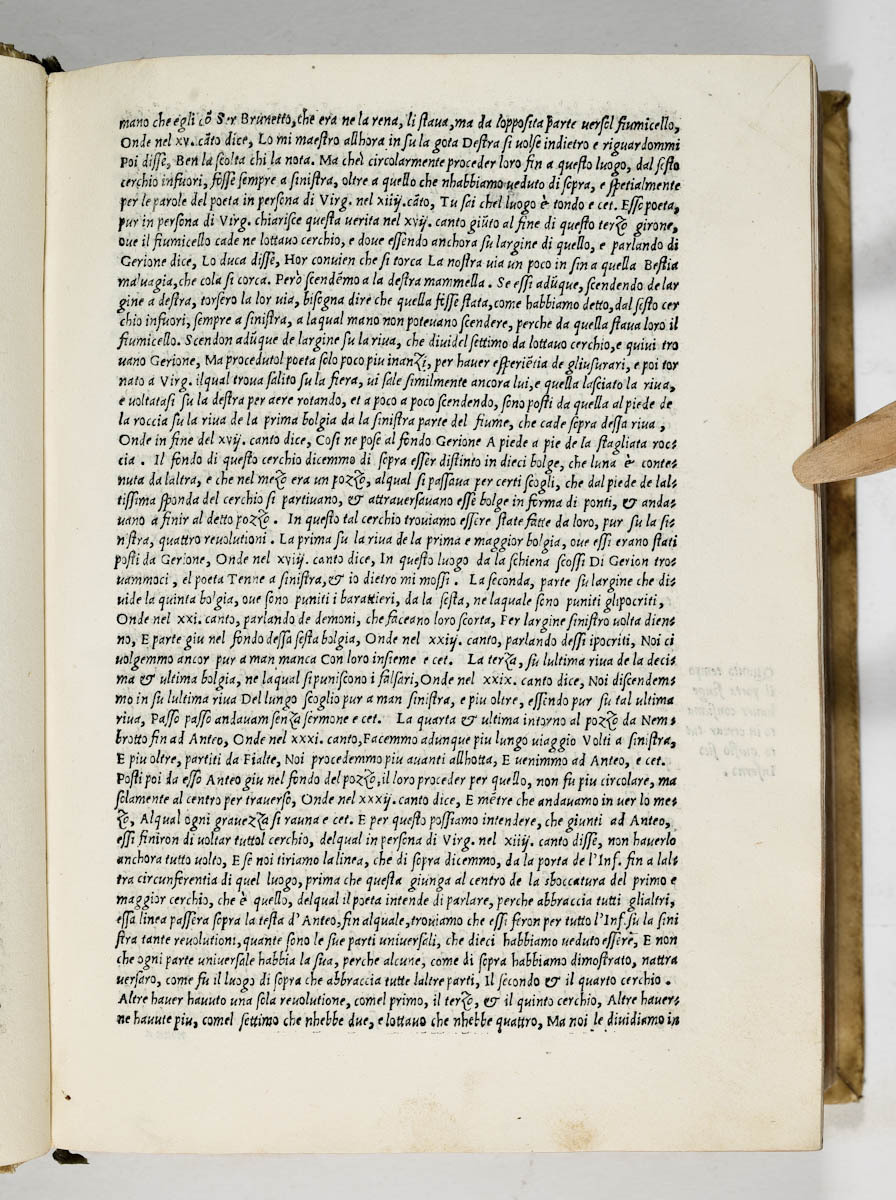 mano che egli cõ Ser Brunetto, che era ne la rena, li staua, ma da lopposita parte uersol fiumicello,
Onde nel xv. cãto dice, Lo mi maestro allhora in su la gota Destra si uolse indietro e riguardommi
Poi disse, Ben la scolta chi la nota. Ma chel circolarmente proceder loro fin a questo luogo, dal sesto
cerchio infuori, fosse sempre a sinistra, oltre a quello che nhabbiamo ueduto di sopra, e spetialmente
per le parole del poeta in persona di Virg. nel xiiij. cãto, Tu sai chel luogo è tondo e cet. Esso poeta,
pur in persona di Virg. chiarisce questa uerita nel xvij. canto giũto al fine di questo terzo girone,
oue il fiumicello cade ne lottauo cerchio, e doue essendo anchora su largine di quello, e parlando di
Gerione dice, Lo duca disse, Hor conuien che si torca La nostra uia un poco in sin a quella Bestia
maluagia, che cola si corca. Però scendẽmo a la destra mammella. Se essi adũque, scendendo de lar
gine a destra, torsero la lor uia, bisogna dire che quella fosse stata, come habbiamo detto, dal sesto cer
chio infuori, sempre a sinistra, a laqual mano non poteuano scendere, perche da quella staua loro il
fiumicello. Scendon adũque de largine su la riua, che diuidel settimo da lottauo cerchio, e quiui tro
uano Gerione, Ma procedutol poeta solo poco piu inanzi, per hauer esperiẽtia de gliusurari, e poi tor
nato a Virg. ilqual troua salito su la fiera, ui sale similmente ancora lui, e quella lasciato la riua,
e uoltatasi su la destra per aere rotando, et a poco a poco scendendo, sono posti da quella al piede de
la roccia su la riua de la prima bolgia da la sinistra parte del fiume, che cade sopra dessa riua,
Onde in fine del xvij. canto dice, Cosi ne pose al fondo Gerione A piede a pie de la stagliata roc=
cia. Il fondo di questo cerchio dicemmo di sopra esser distinto in dieci bolge, che luna è conte=
nuta da laltra, e che nel mezo era un pozzo, alqual si passaua per certi scogli, che dal piede de lal=
tissima sponda del cerchio si partiuano, & attrauersauano esse bolge in forma di ponti, & anda=
uano a finir al detto pozzo. In questo tal cerchio trouiamo essere state fatte da loro, pur su la si=
nistra, quattro reuolutioni. La prima su la riua de la prima e maggior bolgia, oue essi erano stati
posti da Gerione, Onde nel xviij. canto dice, In questo luogo da la schiena scossi Di Gerion tro=
uammoci, el poeta Tenne a sinistra, & io dietro mi mossi. La seconda, parte su largine che di=
uide la quinta bolgia, oue sono puniti i barattieri, da la sesta, ne laquale sono puniti glipocriti,
Onde nel xxi. canto, parlando de demoni, che faceano loro scorta, Per largine sinistro uolta dien=
no, E parte giu nel fondo dessa sesta bolgia, Onde nel xxiij. canto, parlando dessi ipocriti, Noi ci
uolgemmo ancor pur a man manca Con loro insieme e cet. La terza, su lultima riua de la deci=
ma & ultima bolgia, ne la qual si puniscono i falsari, Onde nel xxix. canto dice, Noi discendem=
mo in su lultima riua Del lungo scoglio pur a man sinistra, e piu oltre, essendo pur su tal ultima
riua, Passo passo andauam senza sermone e cet. La quarta & ultima intorno al pozzo da Nem=
brotto fin ad Anteo, Onde nel xxxi. canto, Facemmo adunque piu lungo uiaggio Volti a sinistra,
E piu oltre, partiti da Fialte, Noi procedemmo piu auanti allhotta, E uenimmo ad Anteo, e cet.
Posti poi da esso Anteo giu nel fondo del pozzo, il loro proceder per quello, non fu piu circolare, ma
solamente al centro per trauerso, Onde nel xxxij. canto dice, E mẽtre che andauamo in uer lo me=
zo, Alqual ogni grauezza si rauna e cet. E per questo possiamo intendere, che giunti ad Anteo,
essi finiron di uoltar tuttol cerchio, delqual in persona di Virg. nel xiiij. canto disse, non hauerlo
anchora tutto uolto, E se noi tiriamo la linea, che di sopra dicemmo, da la porta de l'Inf. fin a lal=
tra circunferentia di quel luogo, prima che questa giunga al centro de la sboccatura del primo e
maggior cerchio, che è quello, delqual il poeta intende di parlare, perche abbraccia tutti glialtri,
essa linea passera sopra la testa d'Anteo, fin alquale, trouiamo che essi feron per tutto l'Inf. su la sini
stra tante reuolutioni, quante sono le sue parti uniuersali, che dieci habbiamo ueduto essere, E non
che ogni parte uniuersale habbia la sua, perche alcune, come di sopra habbiamo dimostrato, nattra
uersaro, come fu il luogo di sopra che abbraccia tutte laltre parti, Il secondo & il quarto cerchio.
Altre hauer hauuto una sola reuolutione, comel primo, il terzo, & il quinto cerchio, Altre hauer=
ne hauute piu, comel settimo che nhebbe due, e lottauo che nhebbe quattro, Ma noi le diuidiamo in